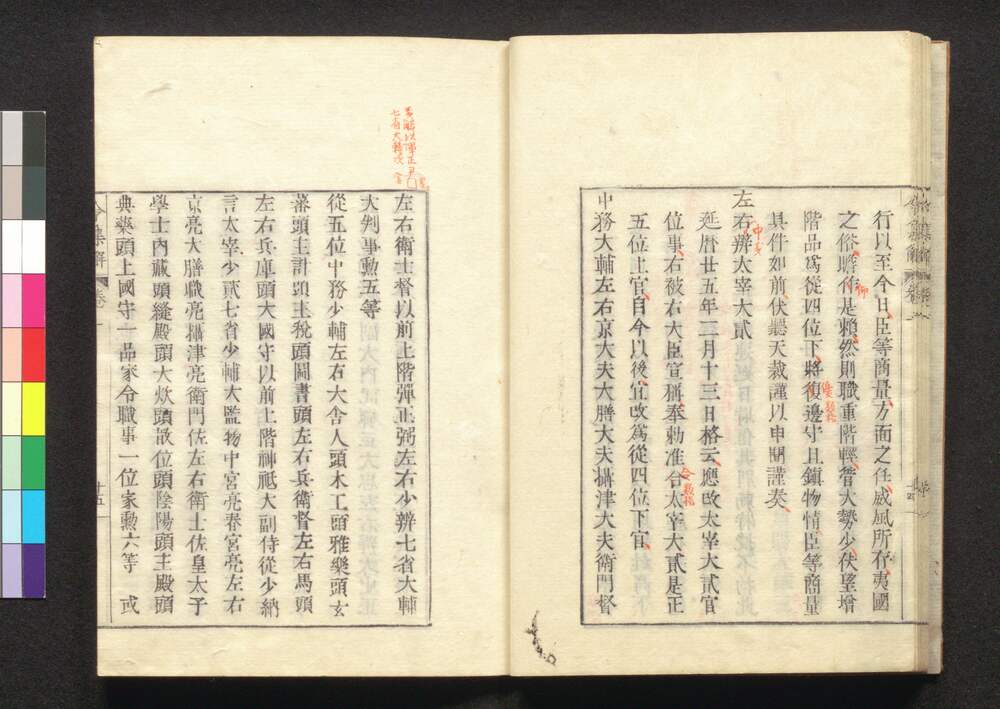 行以至今日、臣等商量、方面之任、威風所存、夷國
之俗、瞻仰是賴、然則職重階輕、督大勢少、伏望增
階品爲從四位下、將復邊守且鎮物情、臣等商量
具件如前、伏聽天裁謹以申聞謹奏、
左右辨太宰大貳
延曆廿五年三月十三日格云、應改太宰大貳官
位事、右被右大臣宣稱、奉勅准合太宰大貳是正
五位上官、自今以後、宜改爲從四位下官、
中務大輔左右京大夫大膳大夫攝津大夫衛門督
左右衛士督以前上階彈正弼左右少辨七省大輔
大判事勳五等
從五位中務少輔左右大舍人頭木工頭雅樂頭玄
蕃頭主計頭主稅頭圖書頭左右兵衛督左右馬頭
左右兵庫頭大國守以前上階神祗大副侍從少納
言太宰少貳七省少輔大監物中宮亮春宮亮左右
京亮大膳職亮攝津亮衛門佐左右衛士佐皇太子
學士內藏頭縫殿頭大炊頭散位頭陰陽頭主殿頭
典藥頭上國守一品家令職事一位家勳六等 或
令集解 卷一 十五